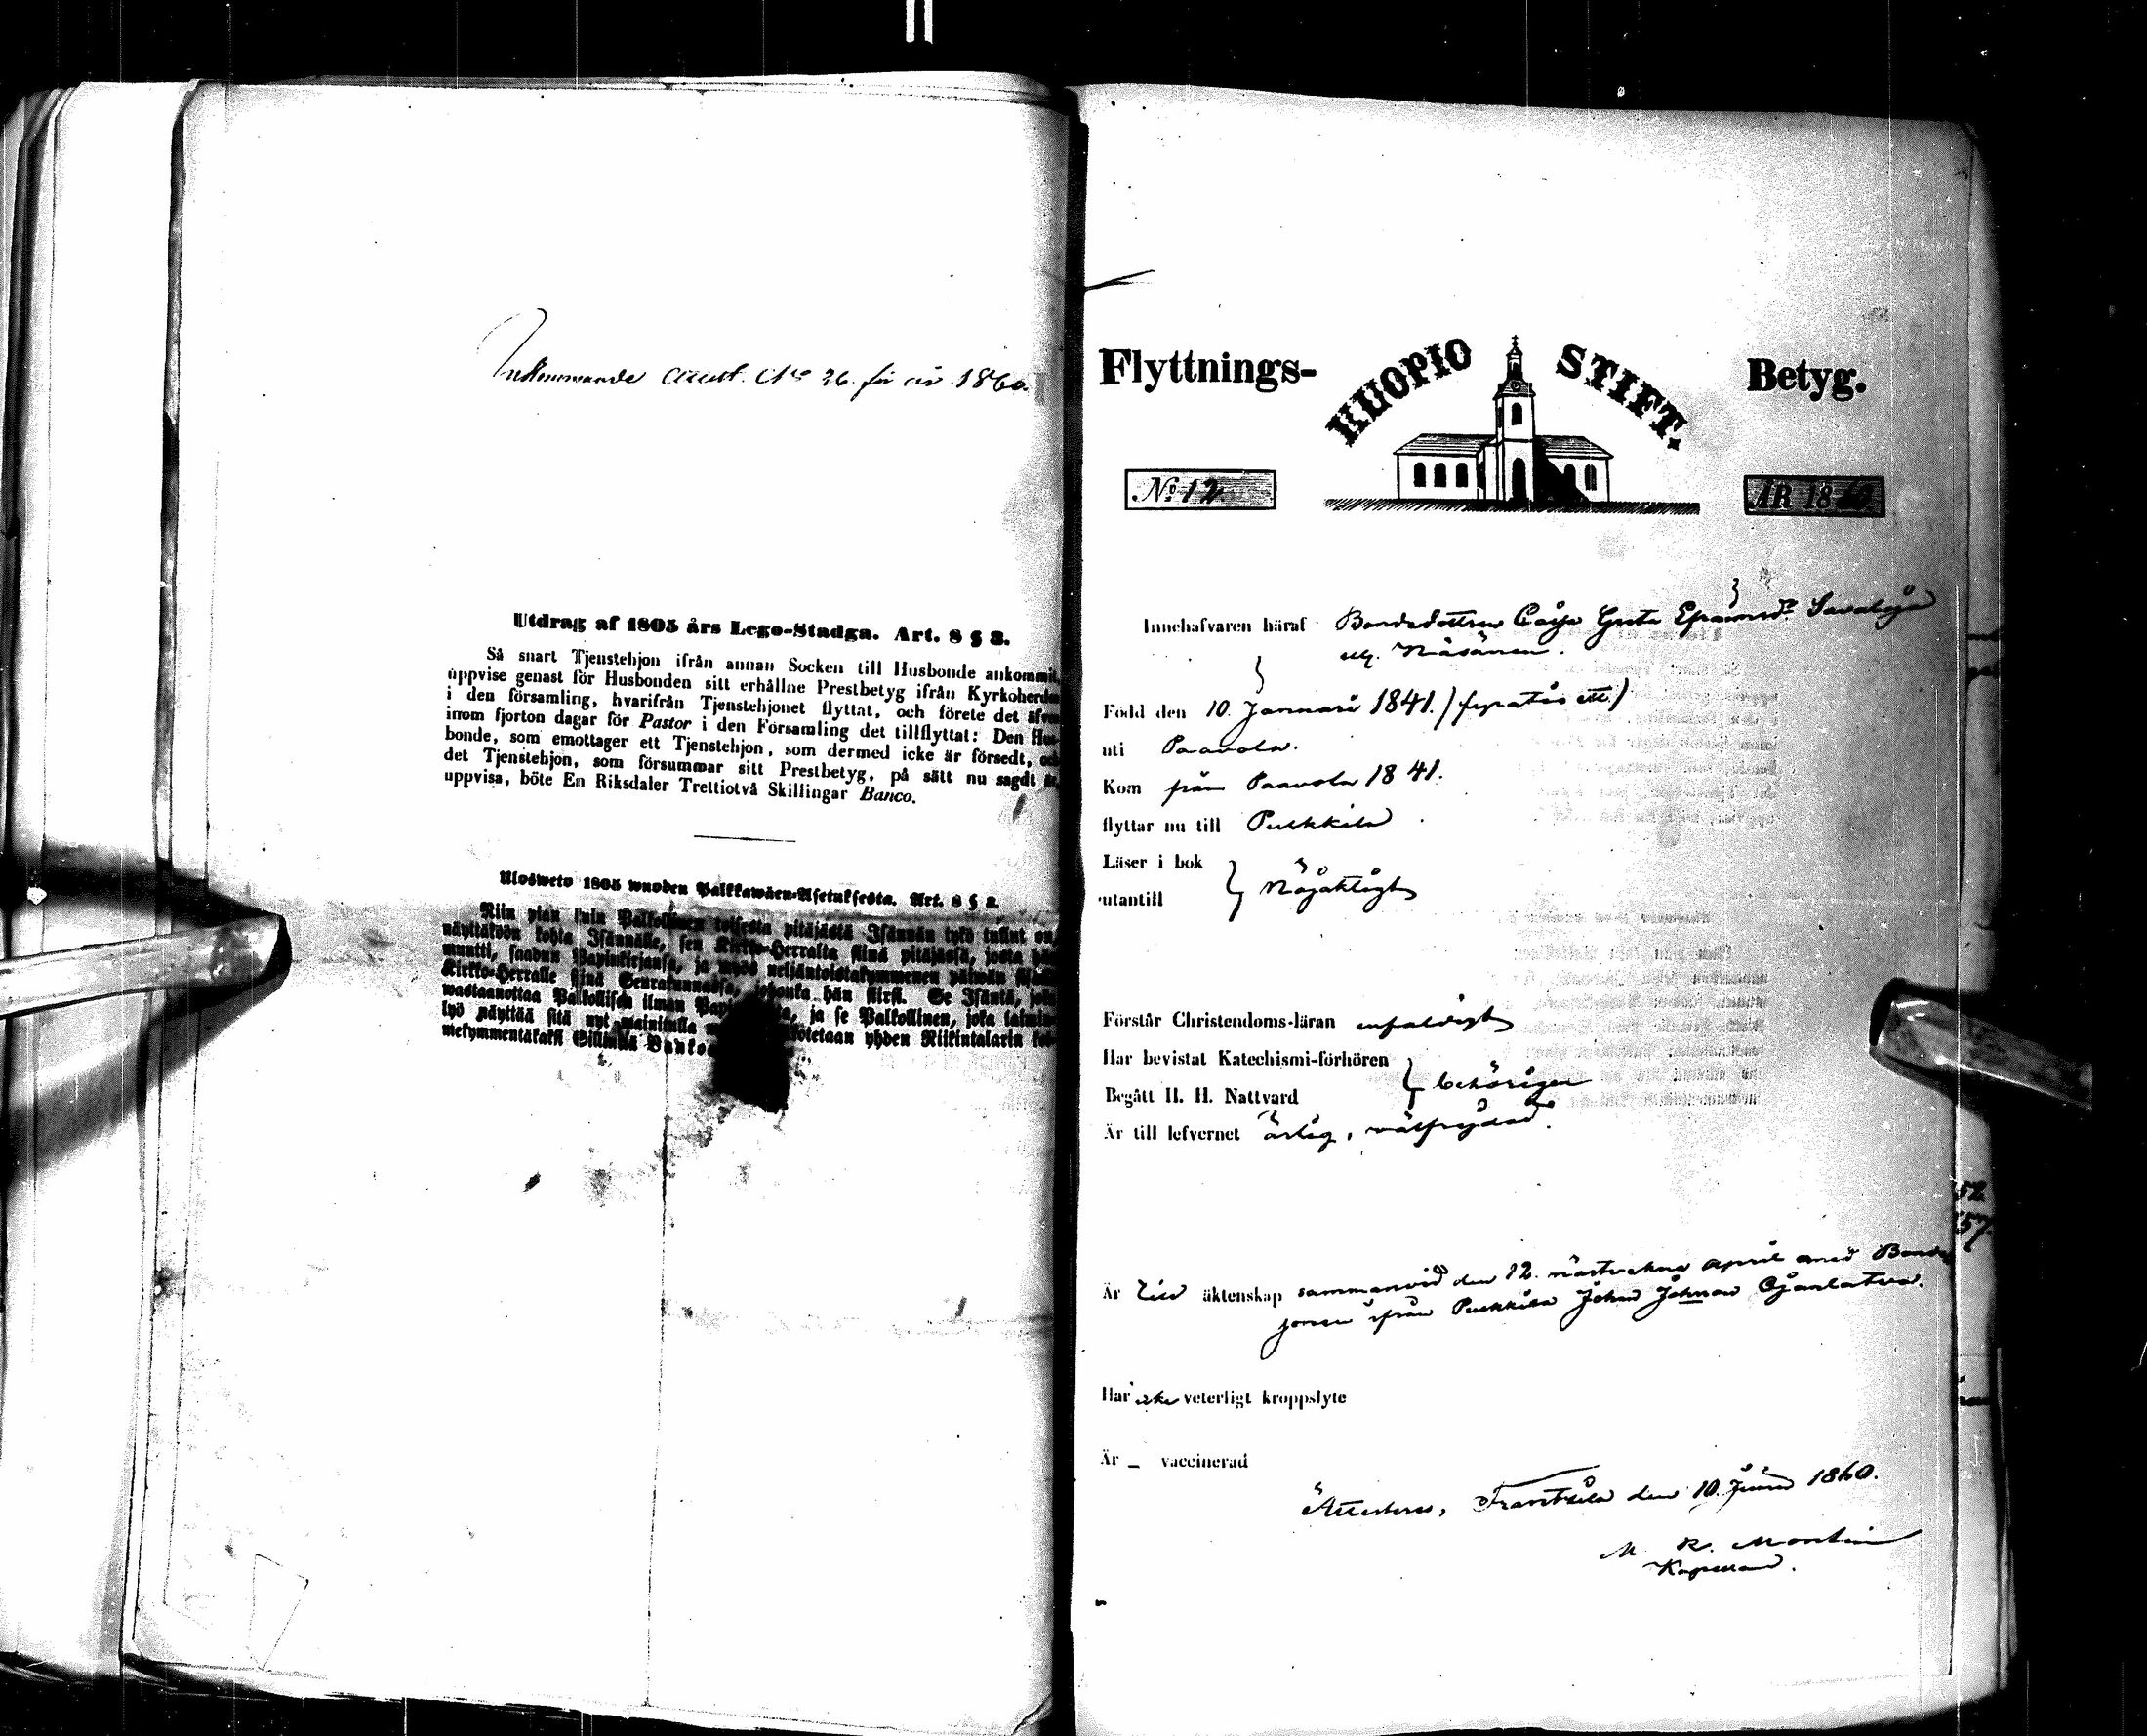 Inkommande attest. No 26. för år 1860.
Utdrag af 1805 års Lego-Stadga. Art. 8 § 3.
Så snart Tjenstehjon ifrån annan Socken till Husbonde ankommit,
uppvise genast för Husbonden sitt erhållne Prestbetyg ifrån Kyrkoherden
i den församling, hvarifrån Tjenstehjonet flyttat, och förete det äfven
inom fjorton dagar för Pastor i den Församling det tillflyttat: Den Hus-
bonde, som emottager ett Tjenstehjon, som dermed icke är försedt, och
det Tjenstehjon, som försummar sitt Prestbetyg, på sätt nu sagdt är,
uppvisa, böte En Riksdaler Trettiotvå Skillingar Banco.
Ulosweto 1805 wuoden Palkkawäen-Asetuksesta. Art. 8 § 3.
Niin pian kuin Palkollinen toisesta pitäjästä Isännän tykö tullut on,
näyttäköön kohta Isännälle, sen Kirkko-Herralta siinä pitäjässä, josta hän
muutti, saadun Papinkirjansa, ja myös neljäntoistakymmenen päiwän sisään
Kirkko-Herralle siinä Seurakunnassa, johonka hän siirsi. Se Isäntä, joka
wastaanottaa Palkollisen ilman ja se Palkollinen, joka laimin-
lyö näyttää sitä nyt mainitulla yhden Riikintalarin kol-
mekymmentäkaksi Sillinkiä
Flyttnings- KUOPIO STIFT. Betyg.
No 12 ÅR 1860
Innehafvaren häraf Bondedottren Caisa Greta Epraimsdr Savaloja
Född den 10. Januari 1841. / fyratio ett /
uti Paavola.
Kom från Paavola 1841.
flyttar nu till Pulkkila
Läser i bok
utantill } Nöjaktigt
Förstår Christendoms-läran enfaldigt
Har bevistat Katechismi-förhören
Begått H. H. Nattvard } behörigen
Är till lefvernet ärlig, välfrejdad.
Är till äktenskap sammanvid den 12. nästvekne April med Bonde
sonen ifrån Pulkkila Johan Johnson Ojanlatva.
Har icke veterligt kroppslyte
Är _ vaccinerad
Attesteras, Frantsila den 10. Juni 1860.
M. R. Montin
Kapellan.